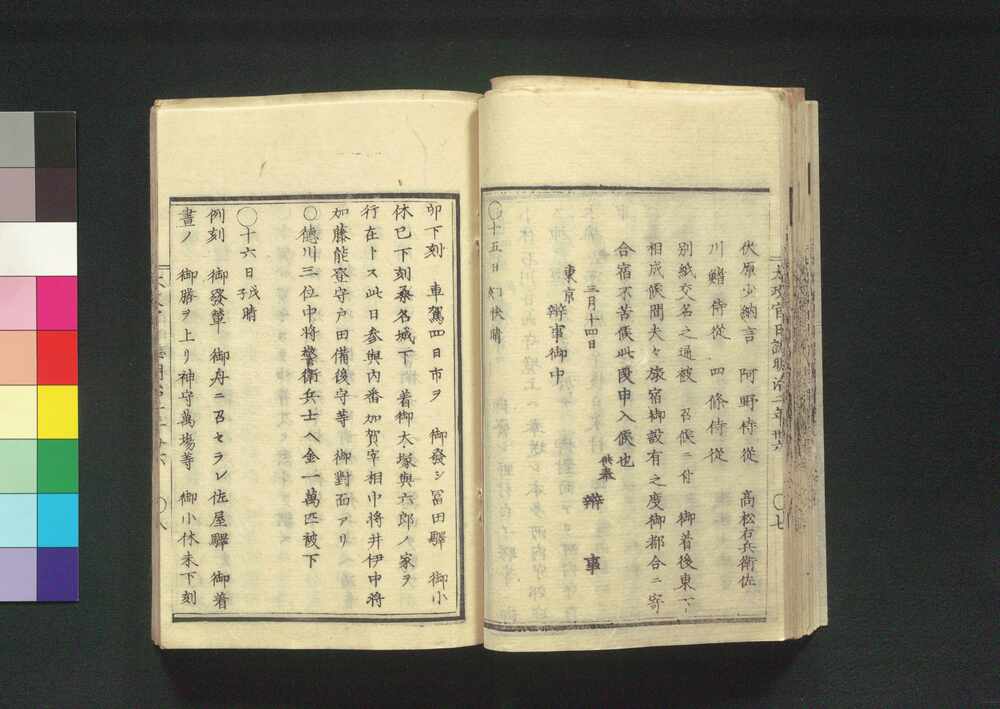 太政官日誌明治二年 廿六 〇七
伏原少納言 阿野侍從 高松右兵衛佐
川鰭侍從 四條侍從
別紙交名之通被 召候ニ付 御着後東下
相成候間夫々旅宿御設有之度御都合ニ寄
合宿不苦候此段申入候也
三月十四日 供奉 辨 事
東京
辨事御中
〇十五日 快晴
卯下刻 車駕四日市ヲ 御發シ冨田驛 御小
休巳下刻桑名城下 着御大塚與六郎ノ家ヲ
行在トス此日參與內番加賀宰相中將井伊中將
加藤能登守戸田備後守等 御對面アリ
〇德川三位中將警衛兵士ヘ金一萬匹被下
〇十六日戊子晴
例刻 御發輦 御舟ニ召セラレ佐屋驛 御着
晝ノ 御膳ヲ上リ神守萬塲等 御小休未下刻
〇八